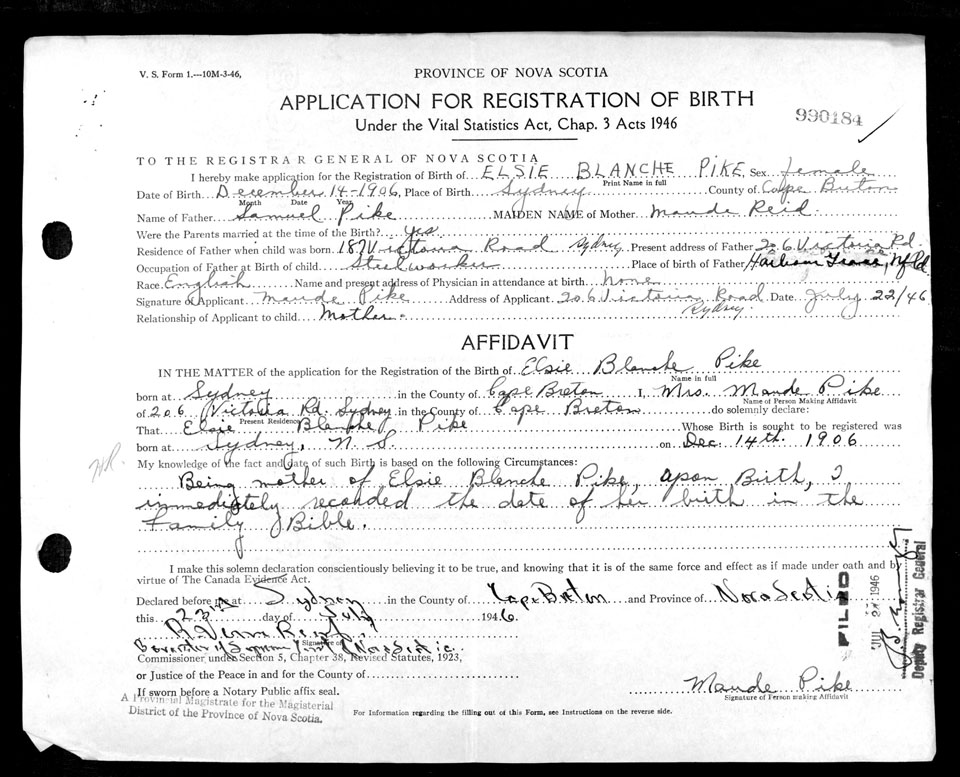 V. S. Form 1.---10M-3-46,
PROVINCE OF NOVA SCOTIA
APPLICATION FOR REGISTRATION OF BIRTH
990184
Under the Vital Statistics Act, Chap. 3 Acts 1946
TO THE REGISTRAR GENERAL OF NOVA SCOTIA
I hereby make application for the Registration of Birth of ELSIE BLANCHE PIKE Sex female
Print Name in full
Date of Birth December 14-1906, Place of Birth Sydney County of Cape Breton
Month Date Year
Name of Father Samuel Pike MAIDEN NAME of Mother Maude Reid.
Were the Parents married at the time of the Birth? yes
Residence of Father when child was born 187 Victoria Road Sydney Present address of Father 206 Victoria Rd.
Occupation of Father at Birth of child Steelworker Place of birth of Father Harbour Grace, Nfld.
Race English Name and present address of Physician in attendance at birth none
Signature of Applicant Maude Pike Address of Applicant 206 Victoria Road Date July 22/46
Sydney.
Relationship of Applicant to child Mother.
AFFIDAVIT
IN THE MATTER of the application for the Registration of the Birth of Elsie Blanche Pike
Name in full
born at Sydney in the County of Cape Breton I, Mrs. Maude Pike
Name of Person Making Affidavit
of 206 Victoria Rd. Sydney in the County of Cape Breton do solemnly declare:
Present Residence
That Elsie Blanche Pike Whose Birth is sought to be registered was
born at Sydney, N.S. on Dec. 14th. 1906
My knowledge of the fact and date of such Birth is based on the following Circumstances:
Being mother of Elsie Blanche Pike, apon Birth, I
immediately recorded the date of her birth in the
Family Bible.
I make this solemn declaration conscientiously believing it to be true, and knowing that it is of the same force and effect as if made under oath and by
virtue of The Canada Evidence Act.
Declared before me at Sydney in the County of Cape Breton and Province of Nova Scotia
this 23rd day of July 1946.
Signature of
Nova Scotia
Commissioner under Section 5, Chapter 38, Revised Statutes, 1923,
or Justice of the Peace in and for the County of
If sworn before a Notary Public affix seal.
A Provincial Magistrate for the Magisterial
District of the Province of Nova Scotia.
Maude Pike
Signature of Person making Affidavit
For Information regarding the filling out of this Form, see Instructions on the reverse side.
FILED
1946
Deputy Registrar General